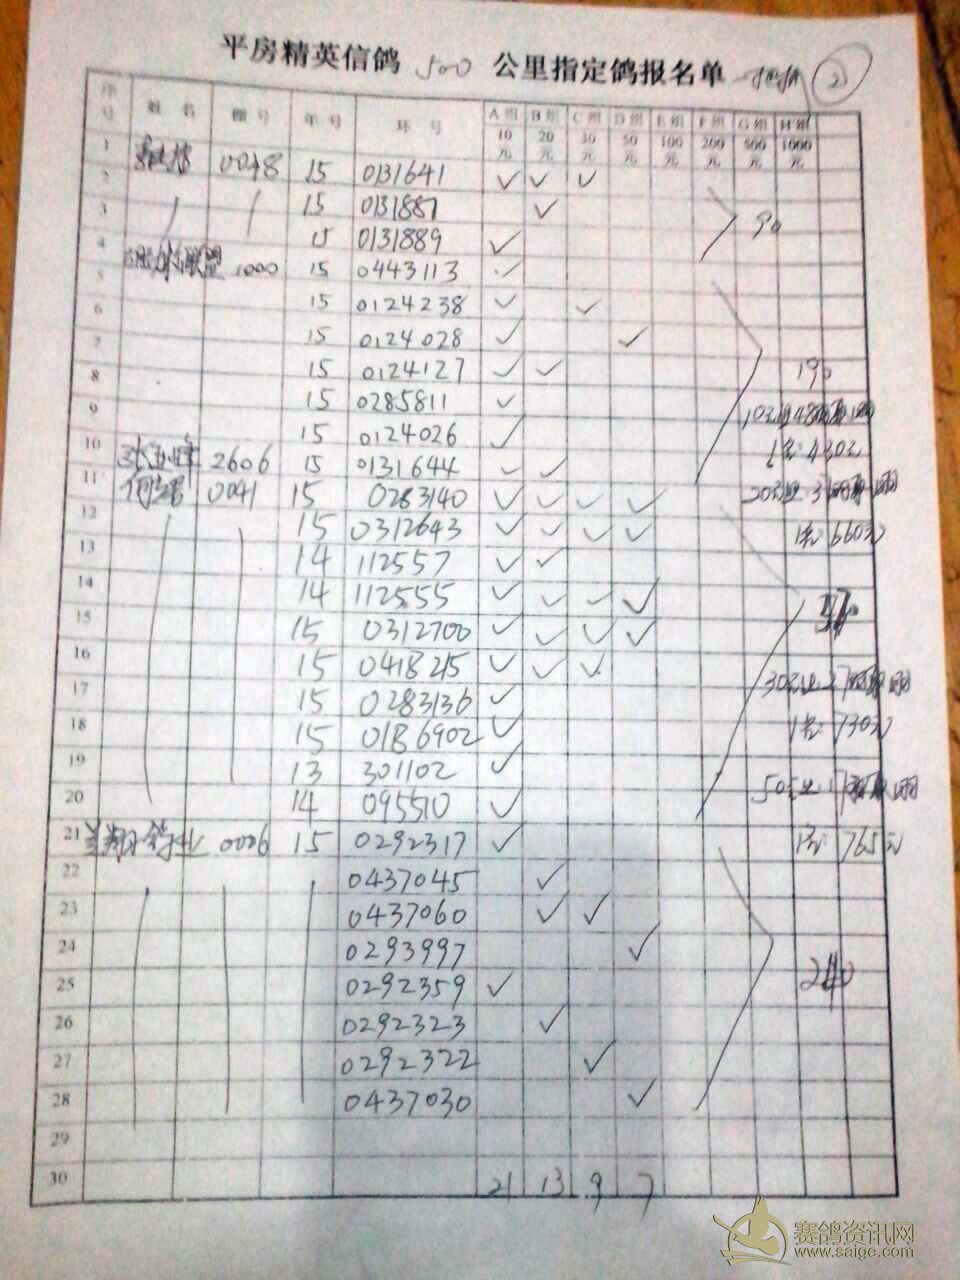 平房精英信鸽 500 公里指定鸽报名单 ②
序号 姓名 棚号 年号 环号 A组10元 B组20元 C组30元 D组50元 E组100元 F组200元 G组500元 H组1000元
1 0048 15 0131641 ✓ ✓ ✓
2 15 0131887 ✓
3 15 0131889 ✓ 90
4 联盟 1000 15 0443113 ✓
5 15 0124238 ✓ ✓
6 15 0124028 ✓ ✓
7 15 0124127 ✓ ✓ 190
8 15 0285811 ✓
9 15 0124026 ✓ 1名: 480元
10 2606 15 0131644 ✓ ✓
11 0041 15 0283140 ✓ ✓ ✓ ✓
12 15 0312643 ✓ ✓ ✓ ✓ 1名: 660元
13 14 112557 ✓ ✓
14 14 112555 ✓ ✓ ✓ ✓
15 15 0312700 ✓ ✓ ✓ ✓
16 15 0418215 ✓ ✓ ✓
17 15 0283136 ✓
18 15 0186902 ✓ 1名: 730元
19 13 301102 ✓
20 14 095510 ✓
21 翔鸽业 0006 15 0292317 ✓ 1名: 765元
22 0437045 ✓
23 0437060 ✓ ✓
24 0293997 ✓
25 0292359 ✓ 240
26 0292323 ✓
27 0292322 ✓
28 0437030 ✓
29
30 21 13 9 7
赛鸽资讯网
www.saige.com